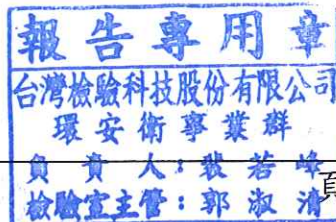 報告專用章
台灣檢驗科技股份有限公司
環安衛事業群
負責人：裴若峰
檢驗室主管：郭淑清
頁